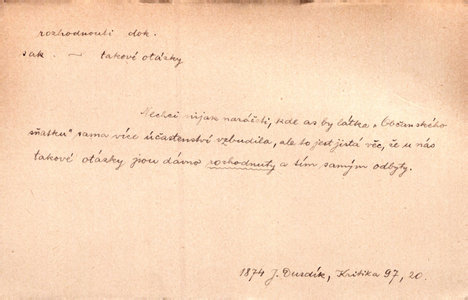 rozhodnouti dok.
sak. — takové otázky
Nechci nijak narážeti, kde as by látka „Občanského
sňatku“ sama více účastenství vzbudila, ale to jest jistá věc, že u nás
takové otázky jsou dávno rozhodnuty a tím samým odbyty.
1874 J. Durdík, Kritika 97, 20.